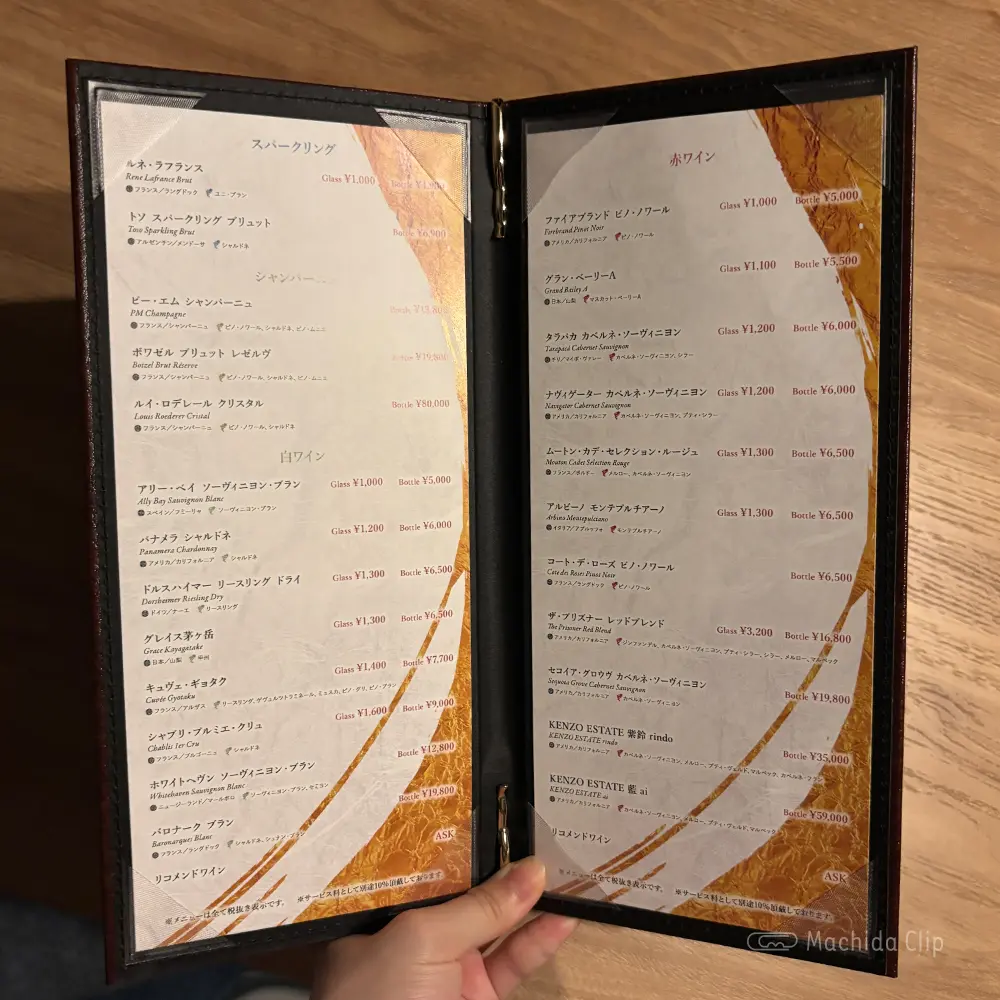 スパークリング
ルネ・ラフランス
Rene Lafrance Brut Glass ¥1,000
フランス/ラングドック ユニ・ブラン
トソ スパークリング ブリュット
Toso Sparkling Brut Bottle ¥6,900
アルゼンチン/メンドーサ シャルドネ
シャンパー
ピー・エム シャンパーニュ
PM Champagne
フランス/シャンパーニュ ピノ・ノワール、シャルドネ、ピノ・ムニエ
ボワゼル ブリュット レゼルヴ
Boizel Brut Réserve Bottle ¥19,800
フランス/シャンパーニュ ピノ・ノワール、シャルドネ、ピノ・ムニエ
ルイ・ロデレール クリスタル
Louis Roederer Cristal Bottle ¥80,000
フランス/シャンパーニュ ピノ・ノワール、シャルドネ
白ワイン
アリー・ベイ ソーヴィニヨン・ブラン Glass ¥1,000 Bottle ¥5,000
Ally Bay Sauvignon Blanc
スペイン/フミーリャ ソーヴィニヨン・ブラン
パナメラ シャルドネ Glass ¥1,200 Bottle ¥6,000
Panamera Chardonnay
アメリカ/カリフォルニア シャルドネ
ドルスハイマー リースリング ドライ Glass ¥1,300 Bottle ¥6,500
Dorsheimer Riesling Dry
ドイツ/ナーエ リースリング
グレイス茅ヶ岳 Glass ¥1,300 Bottle ¥6,500
Grace Kayagatake
日本/山梨 甲州
キュヴェ・ギョタク Glass ¥1,400 Bottle ¥7,700
Cuvée Gyotaku
フランス/アルザス リースリング、ゲヴュルツトラミネール、ミュスカ、ピノ・グリ、ピノ・ブラン
シャブリ・プルミエ・クリュ Glass ¥1,600 Bottle ¥9,000
Chablis 1er Cru
フランス/ブルゴーニュ シャルドネ
ホワイトヘヴン ソーヴィニヨン・ブラン Bottle ¥12,800
Whitehaven Sauvignon Blanc
ニュージーランド/マールボロ ソーヴィニヨン・ブラン、セミヨン
バロナーク ブラン Bottle ¥19,800
Baronarques Blanc
フランス/ラングドック シャルドネ、シュナン・ブラン
リコメンドワイン ASK
※メニューは全て税抜き表示です。 ※サービス料として別途10%頂戴しております。
赤ワイン
ファイアブランド ピノ・ノワール Glass ¥1,000 Bottle ¥5,000
Firebrand Pinot Noir
アメリカ/カリフォルニア ピノ・ノワール
グラン・ベーリーA Glass ¥1,100 Bottle ¥5,500
Grand Bailey A
日本/山梨 マスカット・ベーリーA
タラパカ カベルネ・ソーヴィニヨン Glass ¥1,200 Bottle ¥6,000
Tarapacá Cabernet Sauvignon
チリ/マイポ・ヴァレー カベルネ・ソーヴィニヨン、シラー
ナヴィゲーター カベルネ・ソーヴィニヨン Glass ¥1,200 Bottle ¥6,000
Navigator Cabernet Sauvignon
アメリカ/カリフォルニア カベルネ・ソーヴィニヨン、プティ・シラー
ムートン・カデ・セレクション・ルージュ Glass ¥1,300 Bottle ¥6,500
Mouton Cadet Selection Rouge
フランス/ボルドー メルロー、カベルネ・ソーヴィニヨン
アルビーノ モンテプルチアーノ Glass ¥1,300 Bottle ¥6,500
Arbino Montepulciano
イタリア/アブルッツォ モンテプルチアーノ
コート・デ・ローズ ピノ・ノワール Bottle ¥6,500
Cote des Roses Pinot Noir
フランス/ラングドック ピノ・ノワール
ザ・プリズナー レッドブレンド Glass ¥3,200 Bottle ¥16,800
The Prisoner Red Blend
アメリカ/カリフォルニア ジンファンデル、カベルネ・ソーヴィニヨン、プティ・シラー、シラー、メルロー、マルベック
セコイア・グロウヴ カベルネ・ソーヴィニヨン Bottle ¥19,800
Sequoia Grove Cabernet Sauvignon
アメリカ/カリフォルニア カベルネ・ソーヴィニヨン
KENZO ESTATE 紫鈴 rindo Bottle ¥35,000
KENZO ESTATE rindo
アメリカ/カリフォルニア カベルネ・ソーヴィニヨン、メルロー、プティ・ヴェルド、マルベック、カベルネ・フラン
KENZO ESTATE 藍 ai Bottle ¥59,000
KENZO ESTATE ai
アメリカ/カリフォルニア カベルネ・ソーヴィニヨン、メルロー、プティ・ヴェルド、マルベック
リコメンドワイン ASK
※メニューは全て税抜き表示です。 ※サービス料として別途10%頂戴しております。
Machida Clip